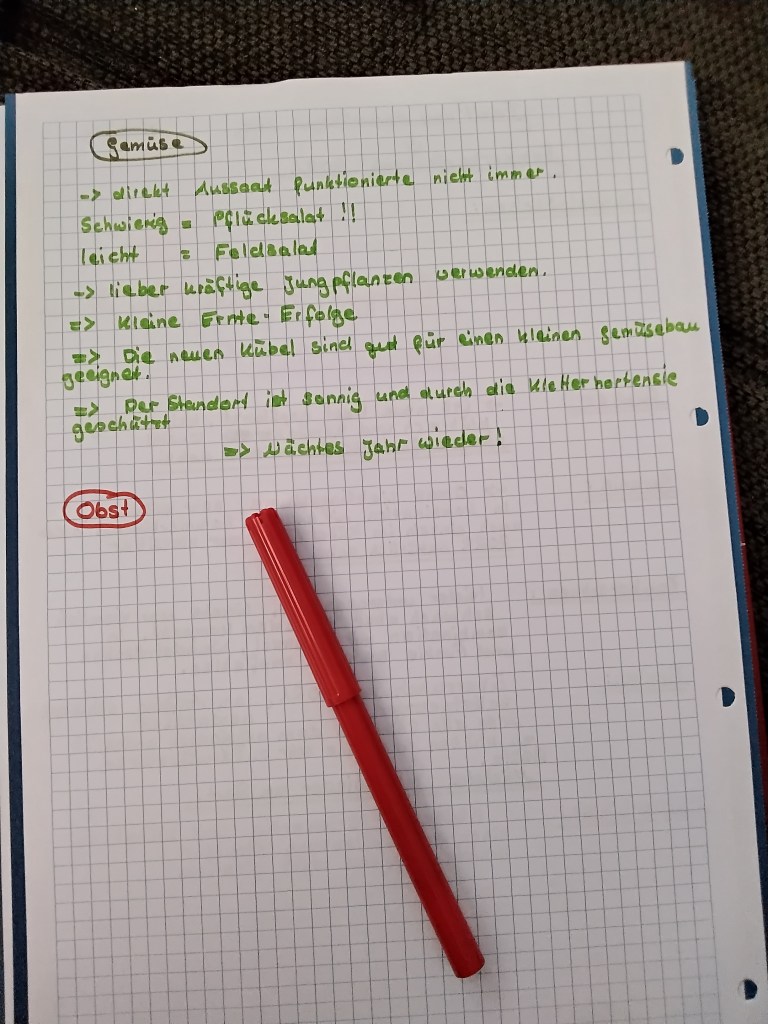 Gemüse
-> direkt Aussaat funktionierte nicht immer.
Schwierig = Pflücksalat !!
leicht = Feldsalad
-> lieber kräftige Jungpflanzen verwenden.
=> Kleine Ernte-Erfolge
=> Die neuen Kübel sind gut für einen kleinen Gemüsebau
geeignet.
=> Der Standort ist sonnig und durch die Kletterhortensie
geschützt
=> Nächtes Jahr wieder!
Obst